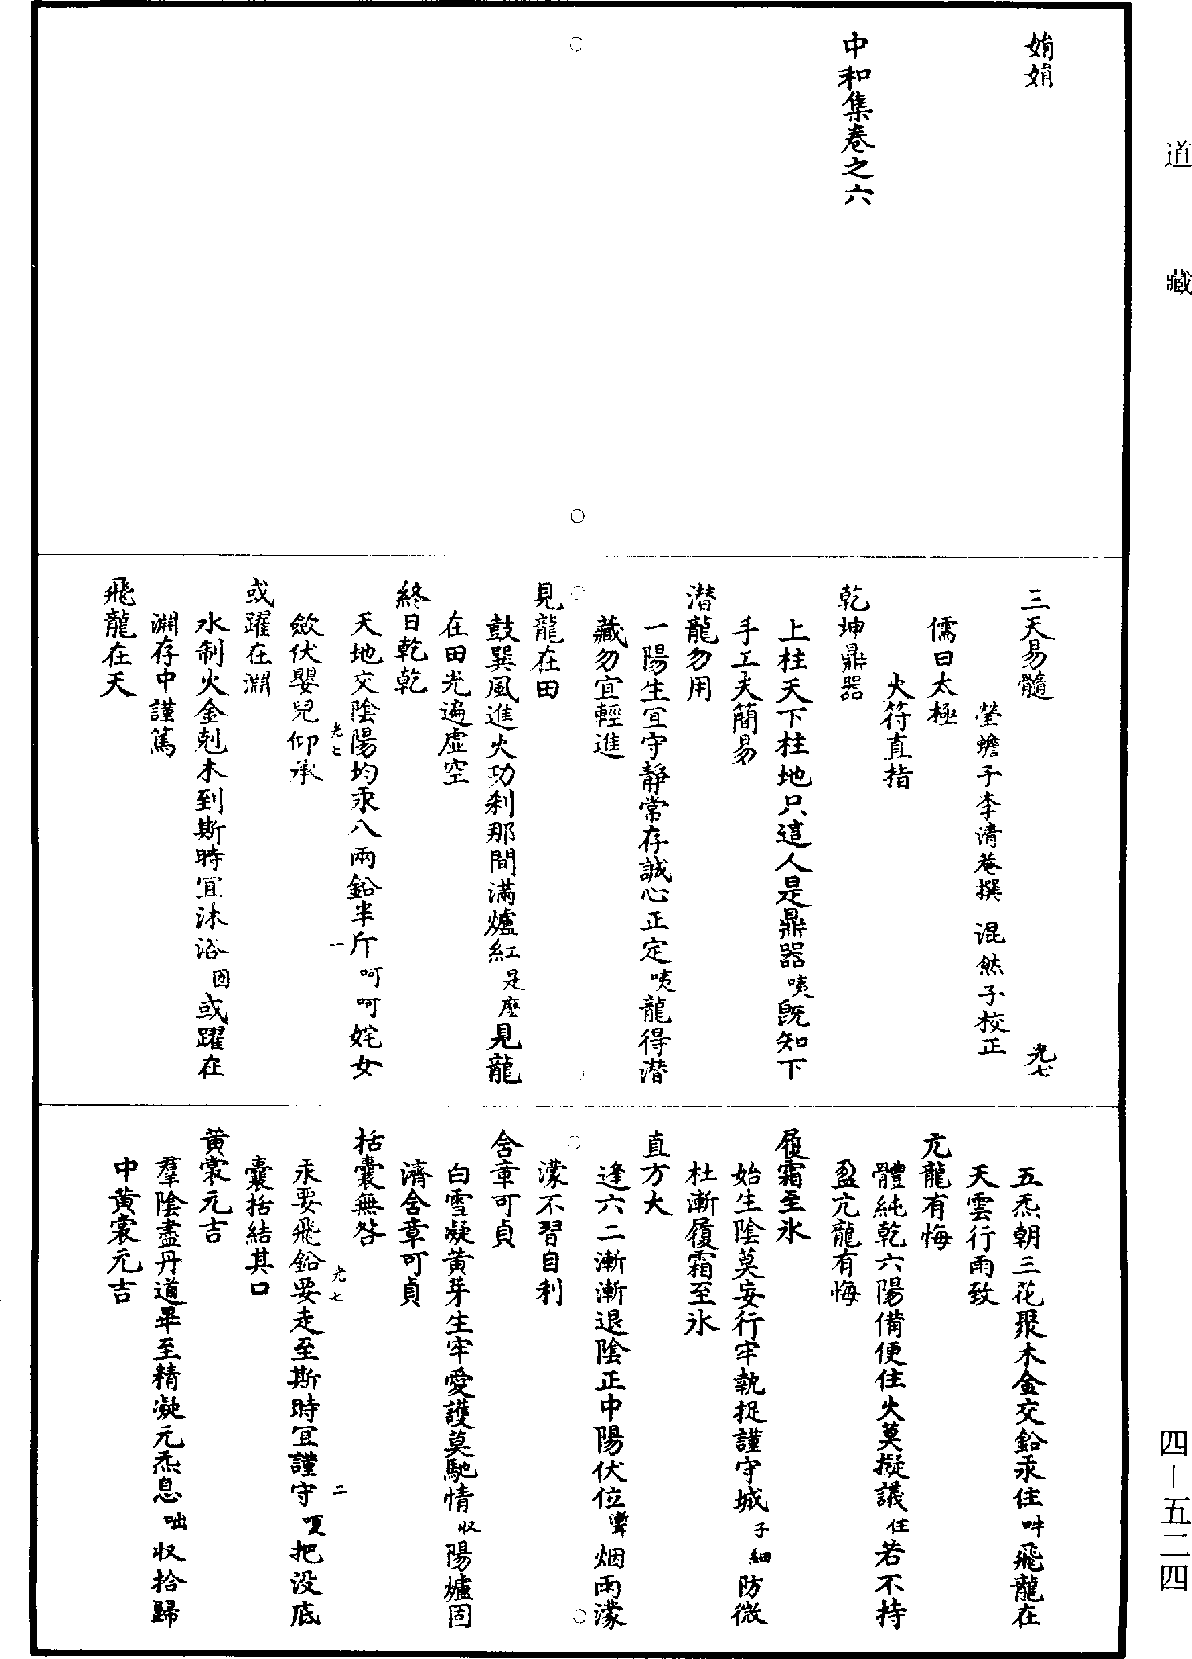 道藏
娋娟
中和集卷之六
三天易髓 光七
瑩蟾子李清菴撰 混然子校正
儒曰太極
火符直指
乾坤鼎器
上柱天下柱地只這人是鼎器咦旣知下
手工夫簡易
潜龍勿用
一陽生宜守靜常存誠心正定咦龍得潜
藏勿宜輕進
見龍在田
鼓巽風進火功刹那間滿爐紅是麽見龍
在田光遍虛空
終日乾乾
天地交陰陽均汞八兩鉛半斤呵呵姹女
光七 一
斂伏嬰兒仰承
或躍在淵
水制火金剋木到斯時宜沐浴囦或躍在
淵存中謹篤
飛龍在天
五炁朝三花聚木金交鉛汞住吽飛龍在
天雲行雨致
亢龍有悔
體純乾六陽備便住火莫擬議住若不持
盈亢龍有悔
履霜至氷
始生陰莫妄行牢執捉謹守城子細防微
杜漸履霜至氷
直方大
逢六二漸漸退陰正中陽伏位㘞烟雨濛
濛不習自利
含章可貞
白雪凝黃芽生牢愛護莫馳情収陽爐固
濟含章可貞
括囊無咎
汞要飛鉛要走至斯時宜謹守㖇把没底
光七 二
囊括結其口
黃裳元吉
羣陰盡丹道畢至精凝元炁息咄収拾歸
中黃裳元吉
四—五二四